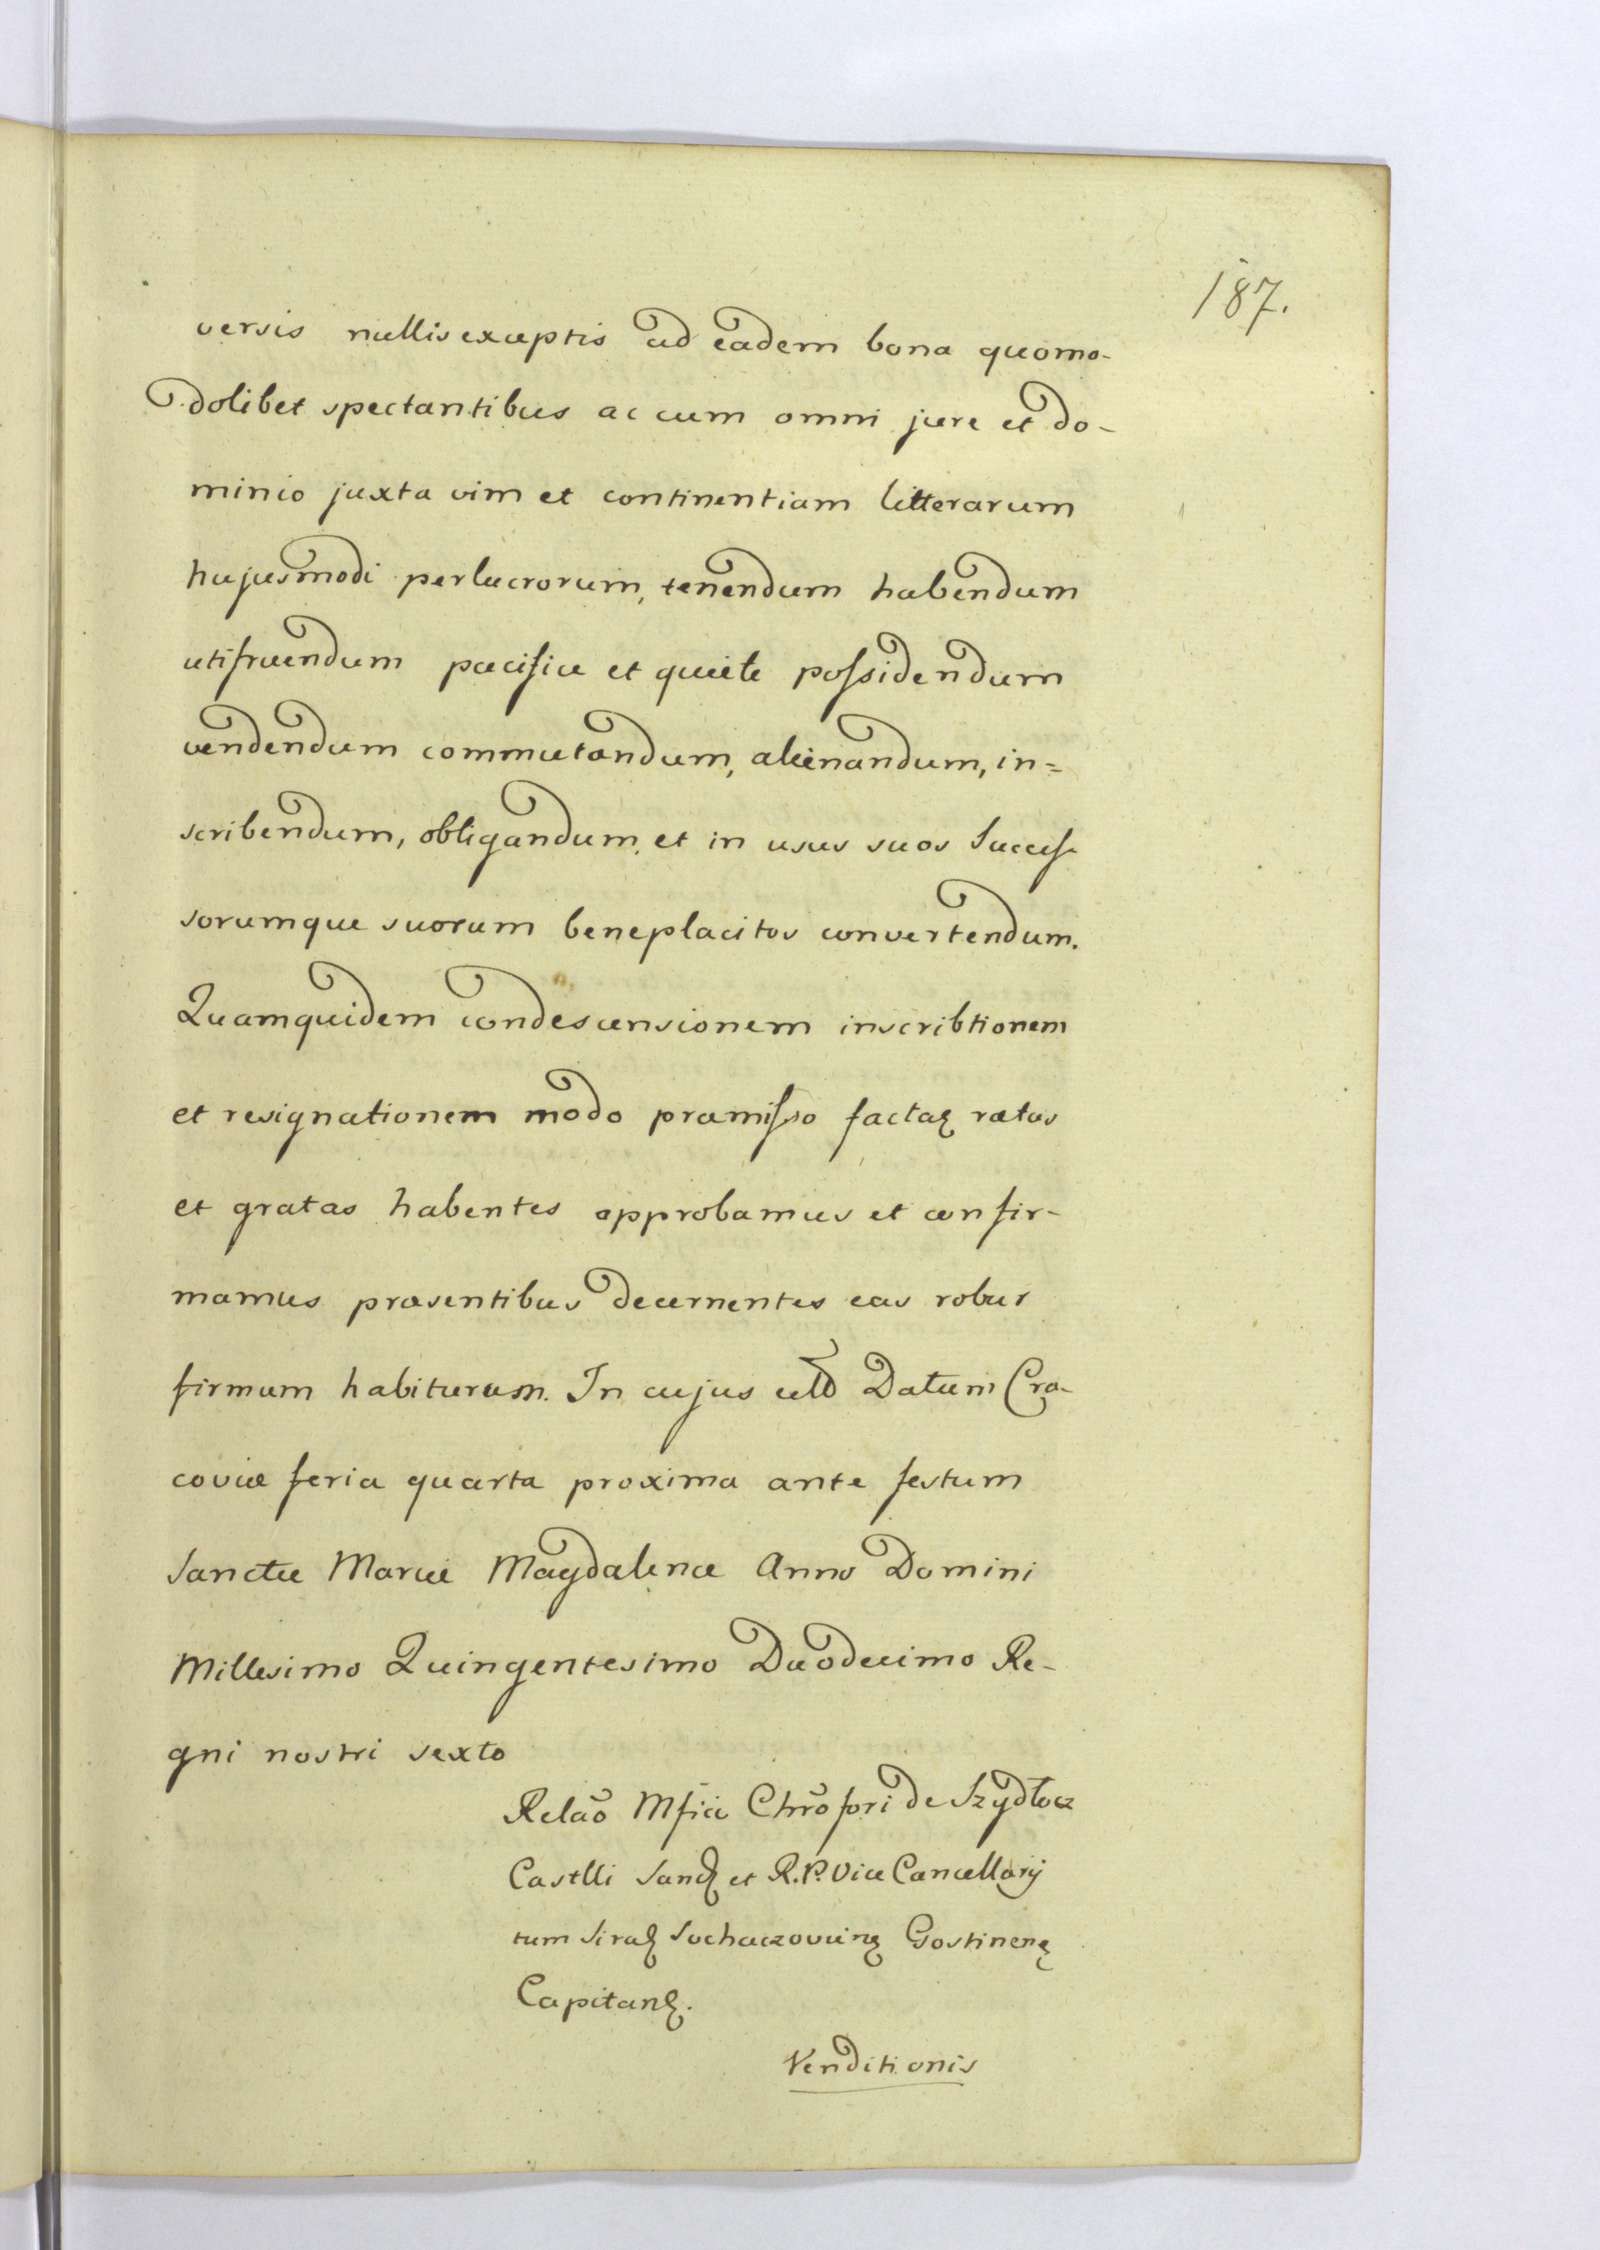 187.
versis nullis exceptis ad eadem bona quomo-
dolibet spectantibus ac cum omni jure et do-
minio juxta vim et continentiam litterarum
hujusmodi perlucrorum, tenendum habendum
utifruendum pacifice et quiete possidendum
vendendum commutandum, alienandum, in=
scribendum, obligandum, et in usus suos Succes-
sorumque suorum beneplacitos convertendum.
Quamquidem condescensionem inscribtionem
et resignationem modo præmisso factaȝ ratas
et gratas habentes approbamus et confir-
mamus præsentibus decernentes eas robur
firmum habituram. In cujus Datum Cra-
coviæ feria quarta proxima ante festum
Sanctæ Mariæ Magdalenæ Anno Domini
Millesimo Quingentesimo Duodecimo Re-
gni nostri sexto
Relão Mfici Chrõfori de Szydłow
Castlli Sandȝ et R. P. Vice Cancellarij
tum Siraȝ Sochaczovienȝ Gostinenȝ
Capitanȝ.
Venditionis